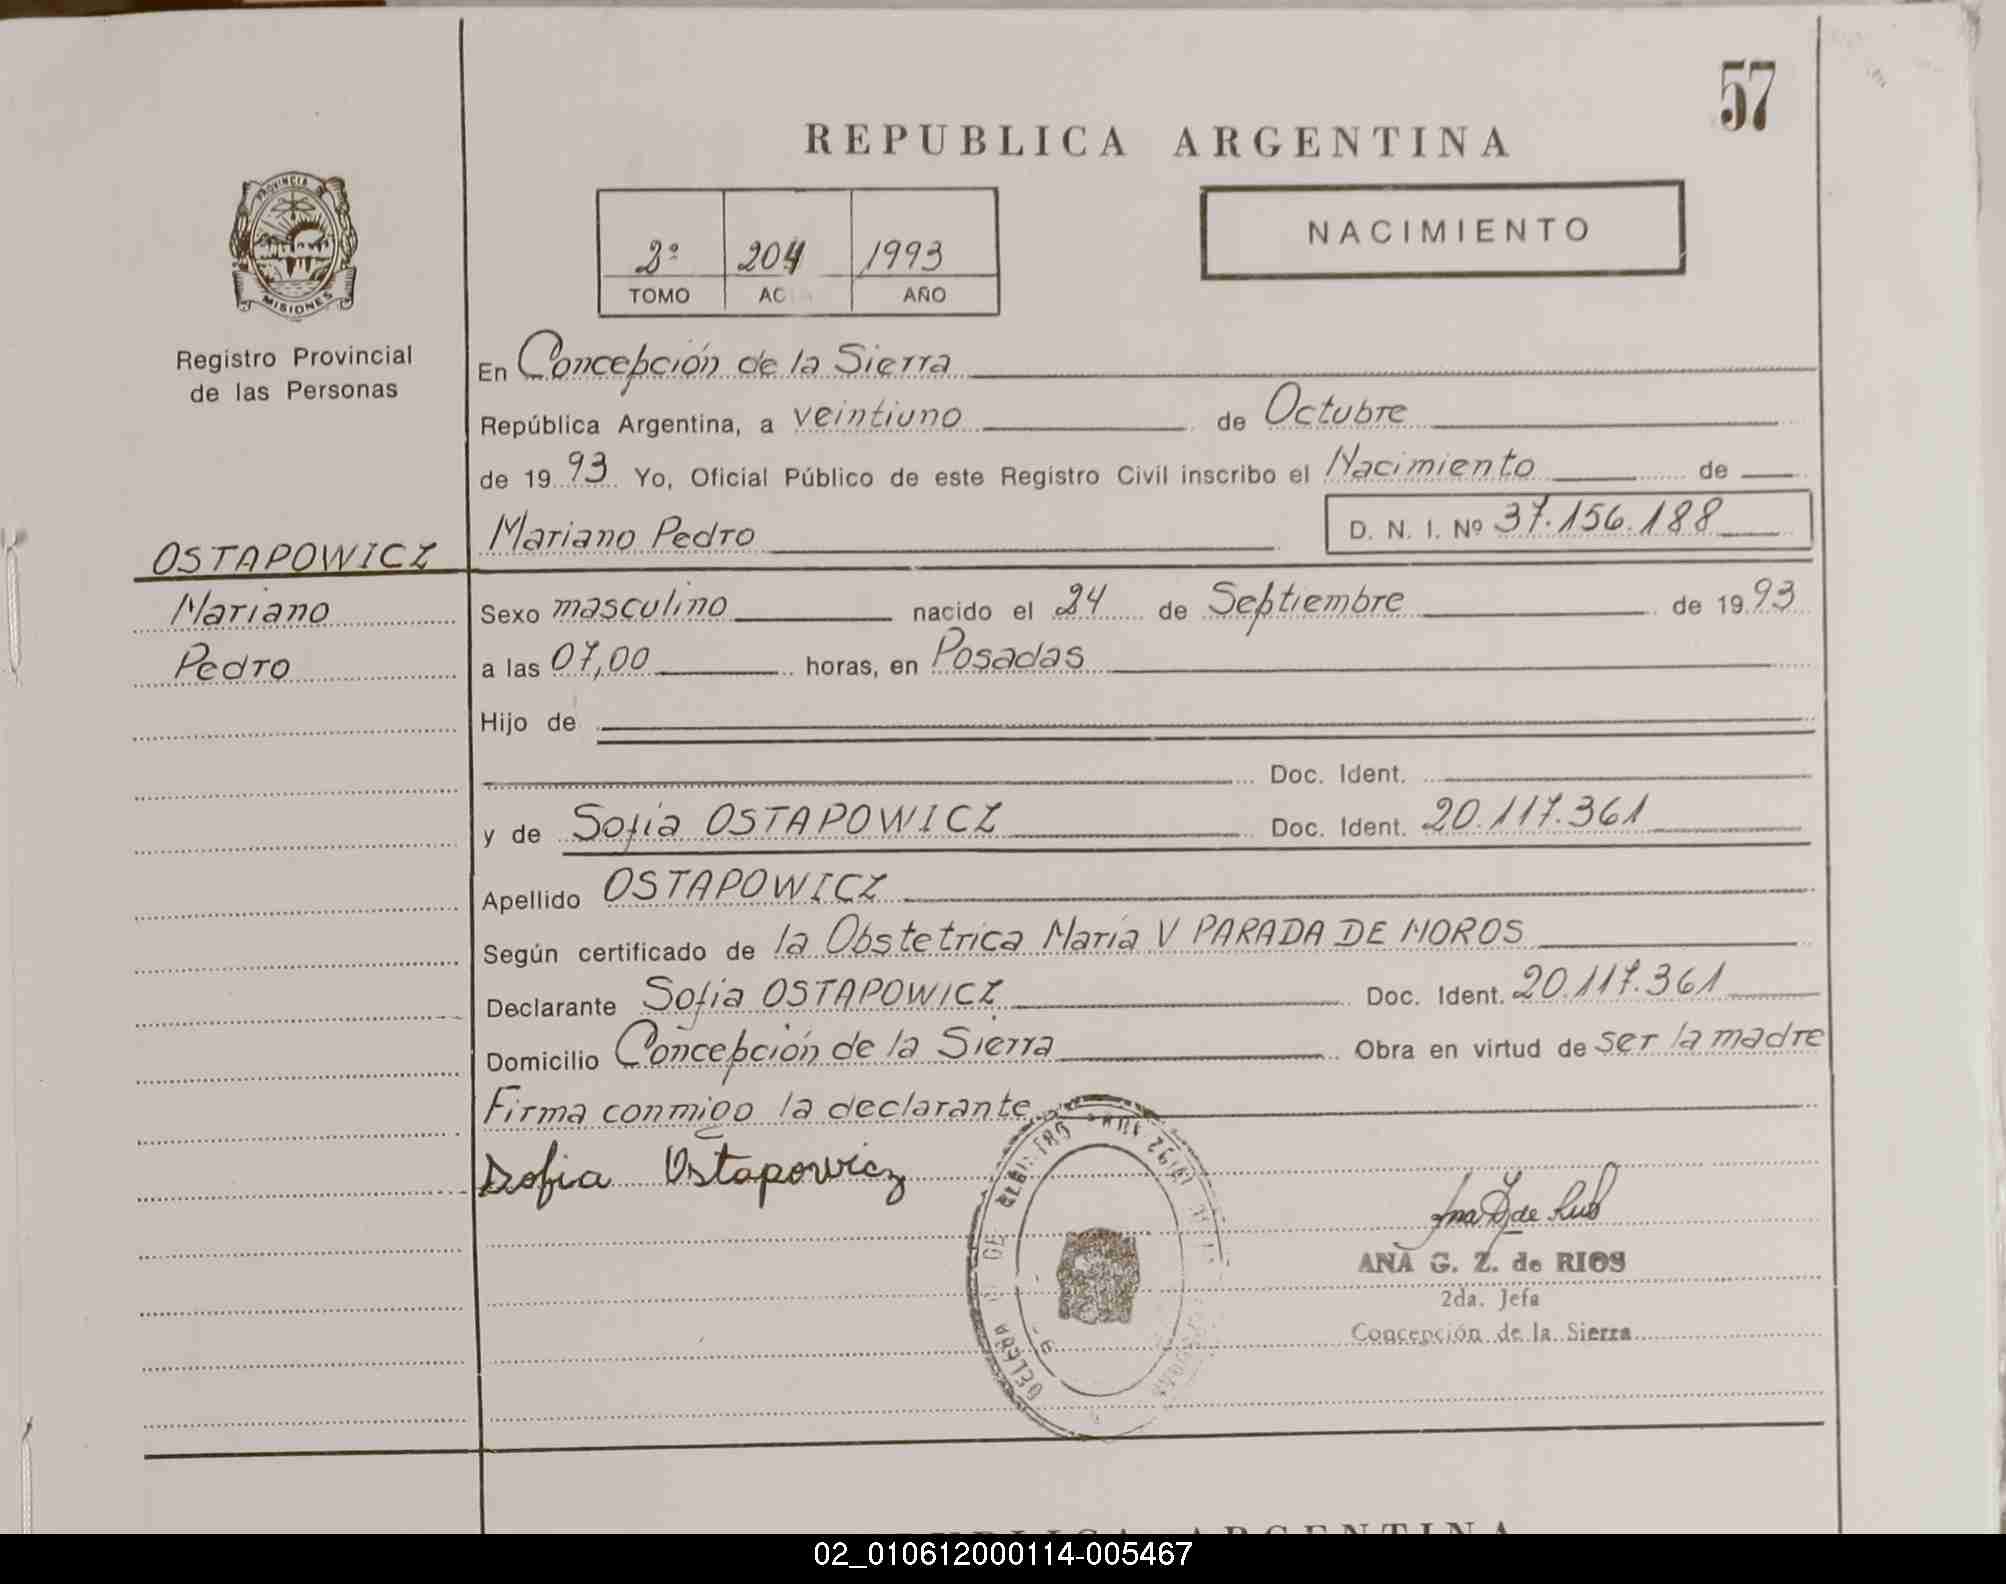 57
REPUBLICA ARGENTINA
PROVINCIA DE
MISIONES
2º 204 1993
TOMO AC AÑO
NACIMIENTO
Registro Provincial
de las Personas
En Concepción de la Sierra
República Argentina, a veintiuno de Octubre
de 1993 Yo, Oficial Público de este Registro Civil inscribo el Nacimiento de
OSTAPOWICZ Mariano Pedro D. N. I. Nº 37.156.188
Mariano Sexo masculino nacido el 24 de Septiembre de 1993
Pedro a las 07,00 horas, en Posadas
Hijo de
Doc. Ident.
y de Sofia OSTAPOWICZ Doc. Ident. 20.117.361
Apellido OSTAPOWICZ
Según certificado de la Obstetrica Maria V PARADA DE MOROS
Declarante Sofia OSTAPOWICZ Doc. Ident. 20.117.361
Domicilio Concepción de la Sierra Obra en virtud de ser la madre
Firma conmigo la declarante
Sofia Ostapowicz
ANA G. Z. de RIOS
2da. Jefa
Concepción de la Sierra
REPUBLICA ARGENTINA
02_010612000114-005467